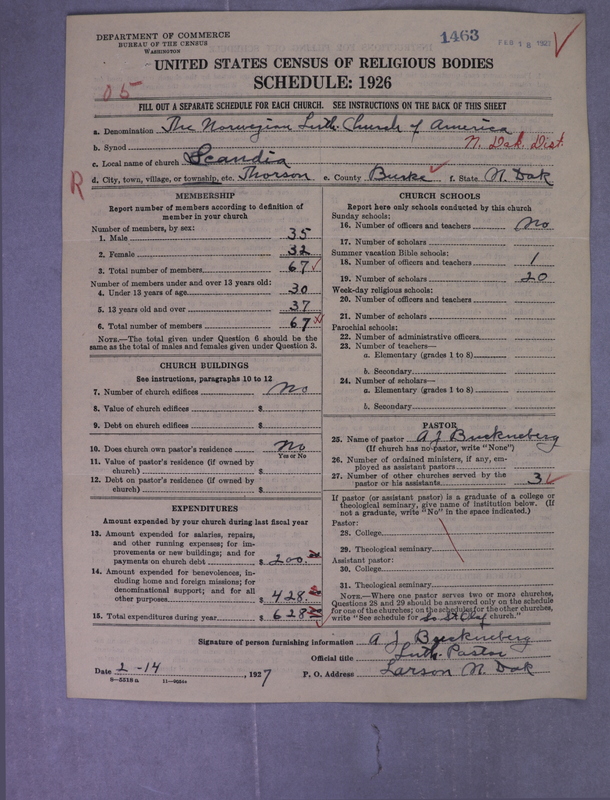 DEPARTMENT OF COMMERCE
BUREAU OF THE CENSUS
WASHINGTON
1463
FEB 18 1927
05
UNITED STATES CENSUS OF RELIGIOUS BODIES
SCHEDULE: 1926
FILL OUT A SEPARATE SCHEDULE FOR EACH CHURCH. SEE INSTRUCTIONS ON THE BACK OF THIS SHEET
a. Denomination The Norwegian Luth. Church of America
b. Synod N. Dak. Dist.
c. Local name of church Scandia
R
d. City, town, village, or township, etc. Thorson e. County Burke f. State N. Dak
MEMBERSHIP
Report number of members according to definition of member in your church
Number of members, by sex:
1. Male 35
2. Female 32
3. Total number of members 67
Number of members under and over 13 years old:
4. Under 13 years of age 30
5. 13 years old and over 37
6. Total number of members 67
NOTE.—The total given under Question 6 should be the same as the total of males and females given under Question 3.
CHURCH BUILDINGS
See instructions, paragraphs 10 to 12
7. Number of church edifices no
8. Value of church edifices $
9. Debt on church edifices $
10. Does church own pastor's residence? no
Yes or No
11. Value of pastor's residence (if owned by church) $
12. Debt on pastor's residence (if owned by church) $
EXPENDITURES
Amount expended by your church during last fiscal year
13. Amount expended for salaries, repairs, and other running expenses; for improvements or new buildings; and for payments on church debt $ 200.
14. Amount expended for benevolences, including home and foreign missions; for denominational support; and for all other purposes $ 428.
15. Total expenditures during year $ 628
CHURCH SCHOOLS
Report here only schools conducted by this church
Sunday schools:
16. Number of officers and teachers No
17. Number of scholars
Summer vacation Bible schools:
18. Number of officers and teachers 1
19. Number of scholars 20
Week-day religious schools:
20. Number of officers and teachers
21. Number of scholars
Parochial schools:
22. Number of administrative officers
23. Number of teachers—
a. Elementary (grades 1 to 8)
b. Secondary
24. Number of scholars—
a. Elementary (grades 1 to 8)
b. Secondary
PASTOR
25. Name of pastor A J
(If church has no pastor, write "None")
26. Number of ordained ministers, if any, employed as assistant pastors
27. Number of other churches served by the pastor or his assistants 3
If pastor (or assistant pastor) is a graduate of a college or theological seminary, give name of institution below. (If not a graduate, write "No" in the space indicated.)
Pastor:
28. College
29. Theological seminary
Assistant pastor:
30. College
31. Theological seminary
NOTE.—Where one pastor serves two or more churches, Questions 28 and 29 should be answered only on the schedule for one of the churches; on the schedules for the other churches, write "See schedule for So St Olaf church."
Signature of person furnishing information A J
Official title Luth. Pastor
Date 2-14, 1927 P. O. Address Larson N. Dak
8-5518a